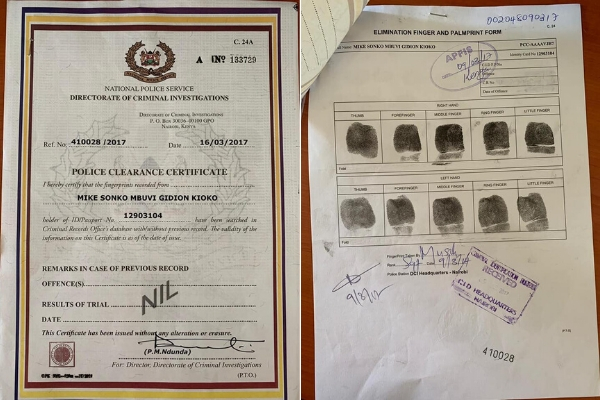 C. 24A
A Nº 133729
NATIONAL POLICE SERVICE
DIRECTORATE OF CRIMINAL INVESTIGATIONS
DIRECTORATE OF CRIMINAL INVESTIGATIONS
P. O. Box 30036-00100 GPO
NAIROBI, KENYA
Ref. No. 410028 /2017 Date 16/03/2017
POLICE CLEARANCE CERTIFICATE
I hereby certify that the fingerprints recorded from
MIKE SONKO MBUVI GIDION KIOKO
holder of ID/Passport No. 12903104 have been searched in
Criminal Records Office's database with/without previous record. The validity of the
information on this Certificate is as of the date of issue.
REMARKS IN CASE OF PREVIOUS RECORD
OFFENCE(S)
RESULTS OF TRIAL
NIL
DATE
This Certificate has been issued without any alteration or erasure.
(P.M.Ndunda)
For: Director, Directorate of Criminal Investigations
(P.T.O.)
C. 24
ELIMINATION FINGER AND PALMPRINT FORM
Name MIKE SONKO MBUVI GIDION KIOKO
Identity Card No 12903104
APFIS
Date of Offence
RIGHT HAND
THUMB FOREFINGER MIDDLE FINGER RING FINGER LITTLE FINGER
Fold
LEFT HAND
THUMB FOREFINGER MIDDLE FINGER RING FINGER LITTLE FINGER
Fold
Police Station DCI Headquarters - Nairobi
RECEIVED
C.I.D HEADQUARTERS
NAIROBI
410028